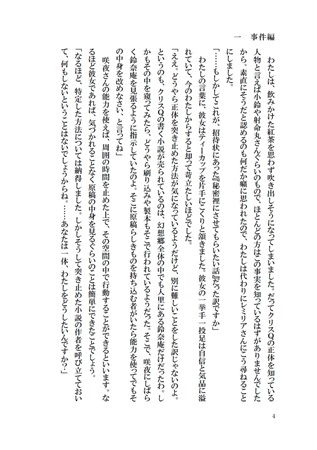 一　事件編
　わたしは、飲みかけた紅茶を思わず吹き出しそうになってしまいました。だってクリスQの正体を知っている
人物と言えば小鈴や射命丸さんぐらいのもので、ほとんどの方はこの事実を知っているはずがありませんでした
から。素直にそうだと認めるのも何だか癪に思われたので、わたしは代わりにレミリアさんにこう尋ねること
にしました。
「……もしかしてこれが、招待状にあった『秘密裡にさせてもらいたい話』だった訳ですか」
　わたしの言葉に、彼女はティーカップを片手にこくりと頷きました。彼女の一挙手一投足は自信と気品に溢
れていて、今のわたしからすると却って苛立たしいほどでした。
「ええ、どうやら正体を突き止めた方法が気になっているようだけど、別に難しいことをした訳じゃないのよ。
というのも、クリスQの書く小説が売られているのは、幻想郷全体の中でも人里にある鈴奈庵だけだったわ。し
かもその中を窺ってみたら、どうやら刷り込みや製本もそこで行われているようだった。そこで、咲夜にしばら
く鈴奈庵を見張るように指示していたのよ、そこに原稿らしきものを持ち込む者がいたら能力を使ってでもそ
の中身を改めなさい、と言ってね」
　咲夜さんの能力を使えば、周囲の時間を止めた上で、その空間の中で行動することができるといいます。な
るほど彼女であれば、気づかれることなく原稿の中身を見るぐらいのことは簡単にできたことでしょう。
「なるほど、特定した方法については納得しました。しかしそうして突き止めた小説の作者を呼び立てておい
て、何もしないということはないでしょうからね。……あなたは一体、わたしをどうしたいんですか？」
4